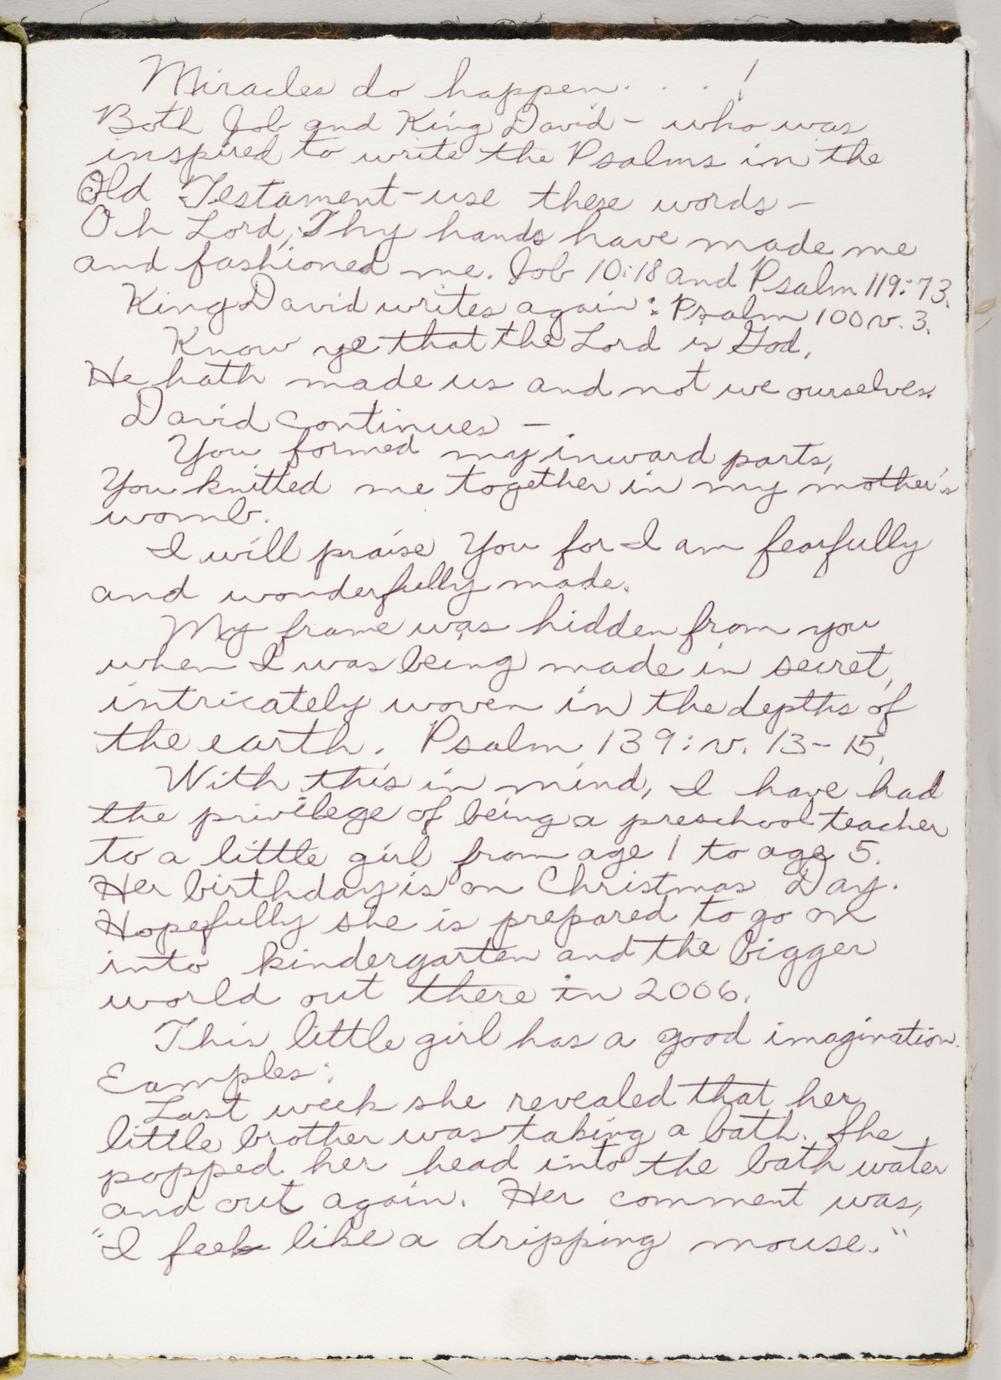 Miracles do happen . . . !
Both Job and King David - who was
inspired to write the Psalms in the
Old Testament - use these words -
Oh Lord, Thy hands have made me
and fashioned me. Job 10:18 and Psalm 119:73.
King David writes again: Psalm 100 v. 3.
Know ye that the Lord is God,
He hath made us and not we ourselves.
David continues -
You formed my inward parts,
You knitted me together in my mother's
womb.
I will praise You for I am fearfully
and wonderfully made.
My frame was hidden from you
when I was being made in secret,
intricately woven in the depths of
the earth. Psalm 139: v. 13-15.
With this in mind, I have had
the privilege of being a preschool teacher
to a little girl from age 1 to age 5.
Her birthday is on Christmas Day.
Hopefully she is prepared to go on
into kindergarten and the bigger
world out there in 2006.
This little girl has a good imagination.
Eamples:
Last week she revealed that her
little brother was taking a bath. She
popped her head into the bath water
and out again. Her comment was,
"I feel like a dripping mouse."